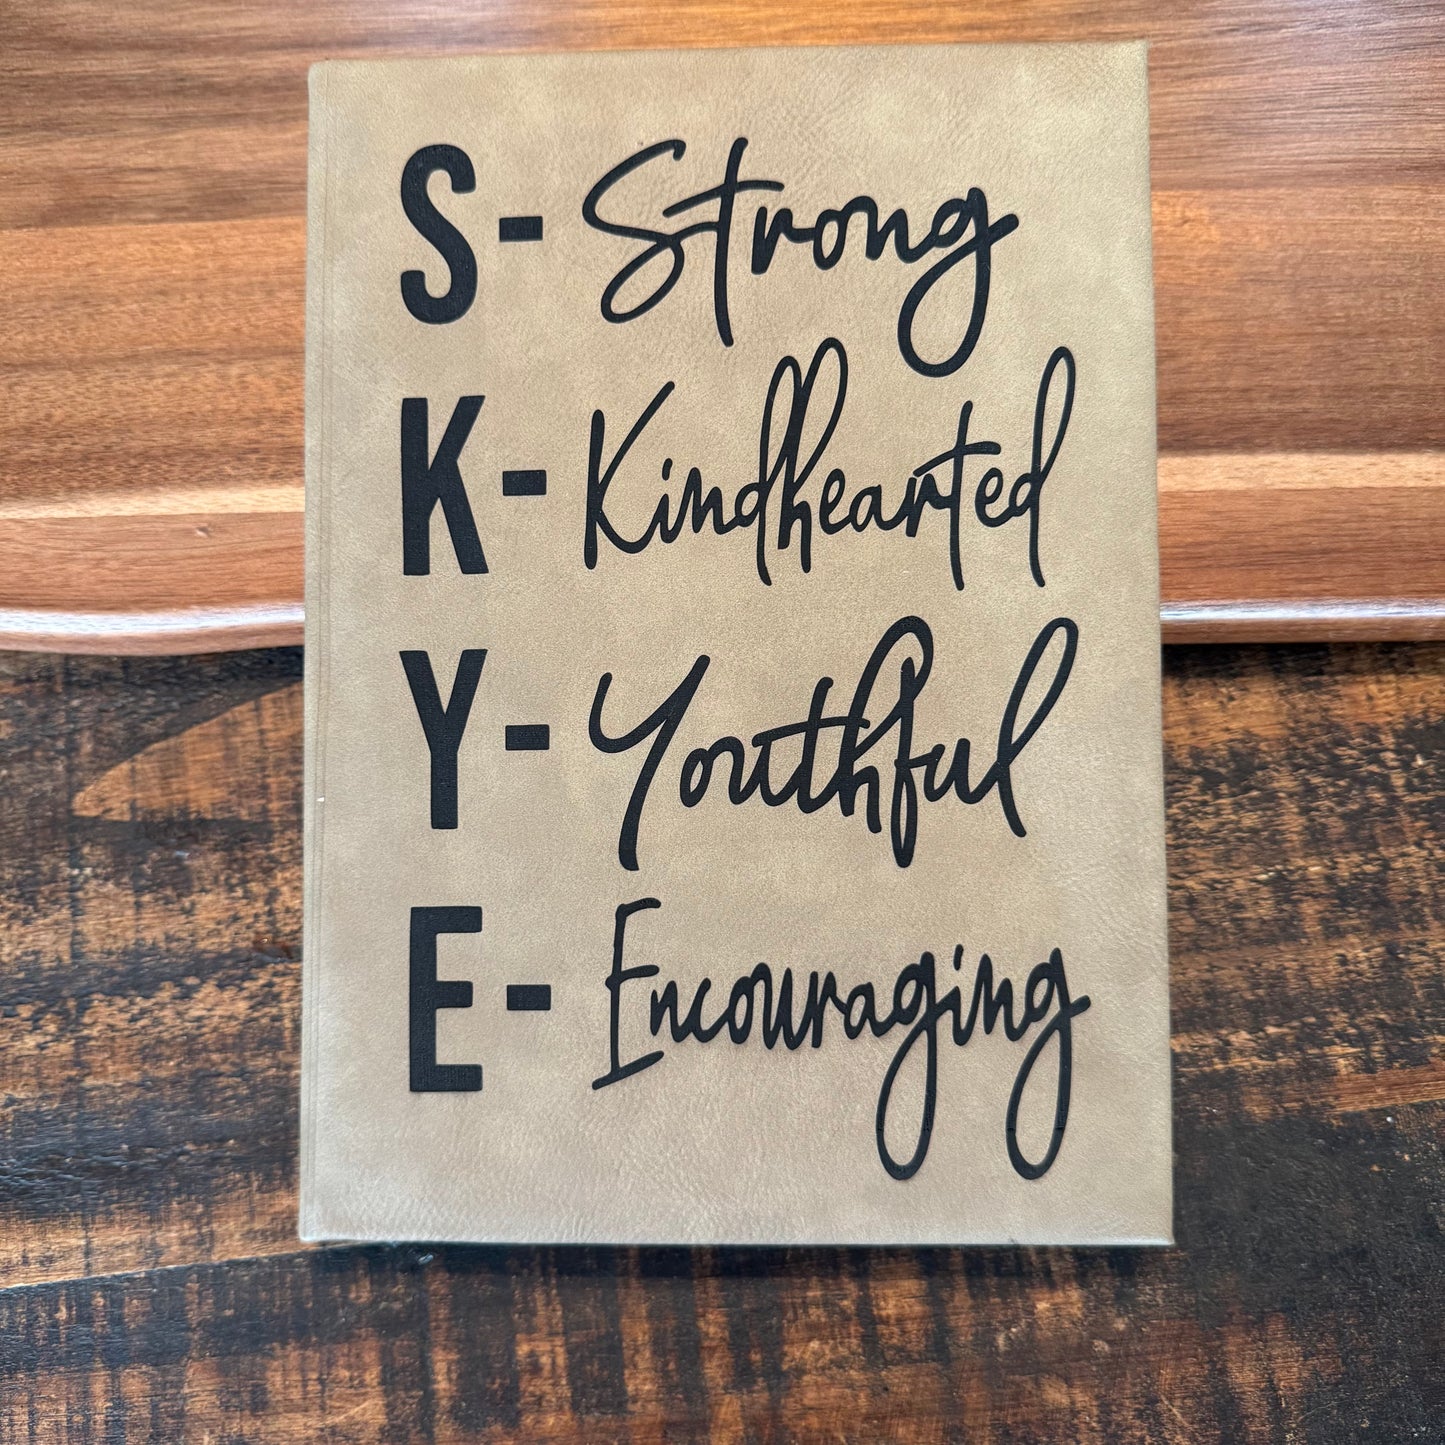 S - Strong
K - Kindhearted
Y - Youthful
E - Encouraging